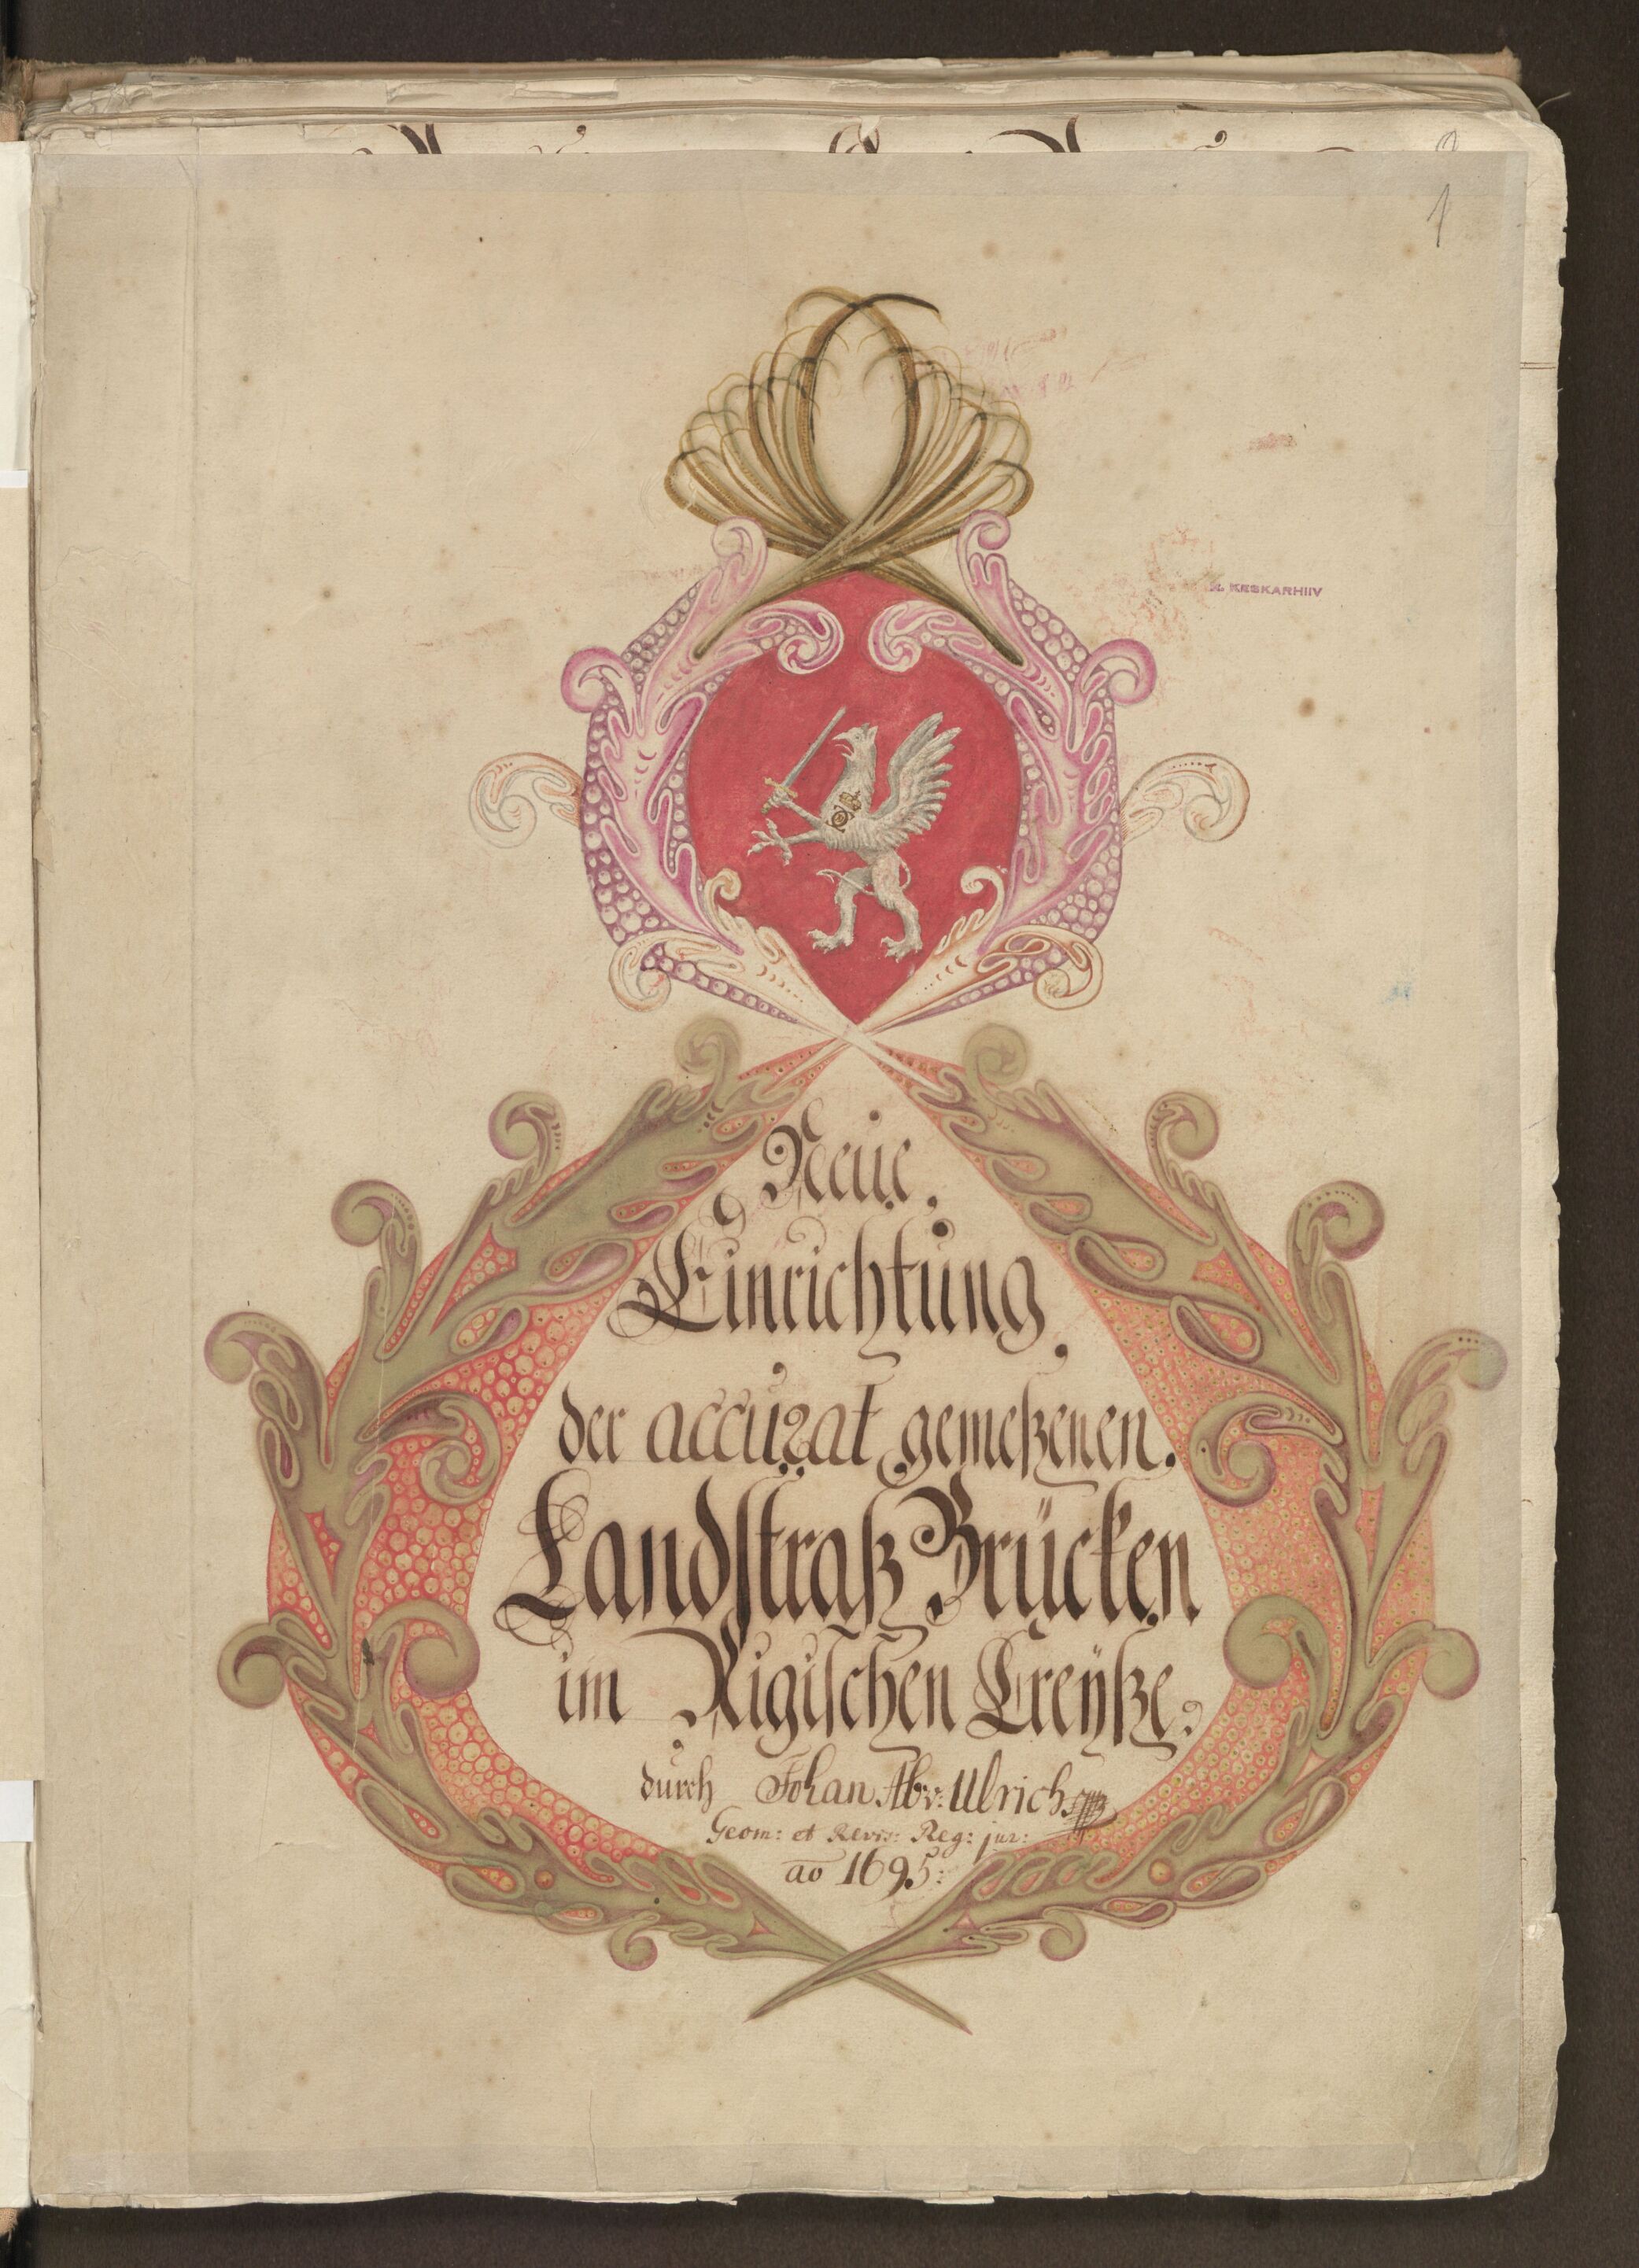 1
R. KESKARHIIV
Neüe
Einrichtung
der accurat gemeßenen
Landstraß Brücken
im Rigischen Creÿße
durch Johan Abr: Ulrich
Geom: et Revis: Reg: jur:
ao 1695: